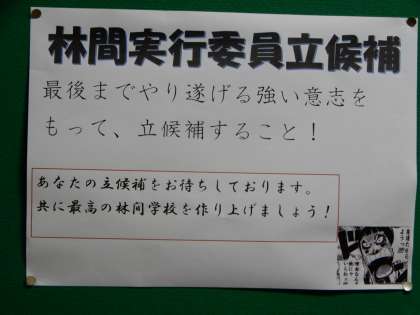 林間実行委員立候補
最後までやり遂げる強い意志を
もって、立候補すること!
あなたの立候補をお待ちしております。
共に最高の林间学校を作り上げましょう!